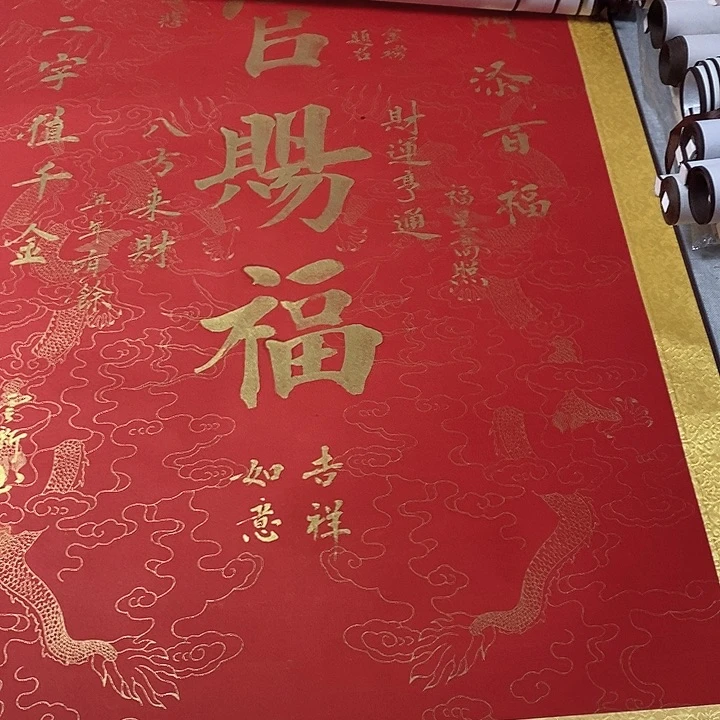 門添百福
福星高照
財運亨通
官賜福
吉祥
如意
八方来財
年有餘
二字值千金